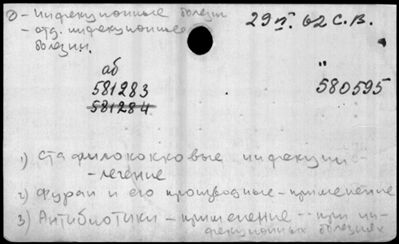 ② - инфекционные болезни
- отд. инфекционные болезни.
29 п. 62 С.В.
аб
581283
581284
"
580595
1) Стафилококковые инфекции
- лечение
2) Фуран и его производные - применение
3) Антибиотики - применение - при ин-
фекционных болезнях